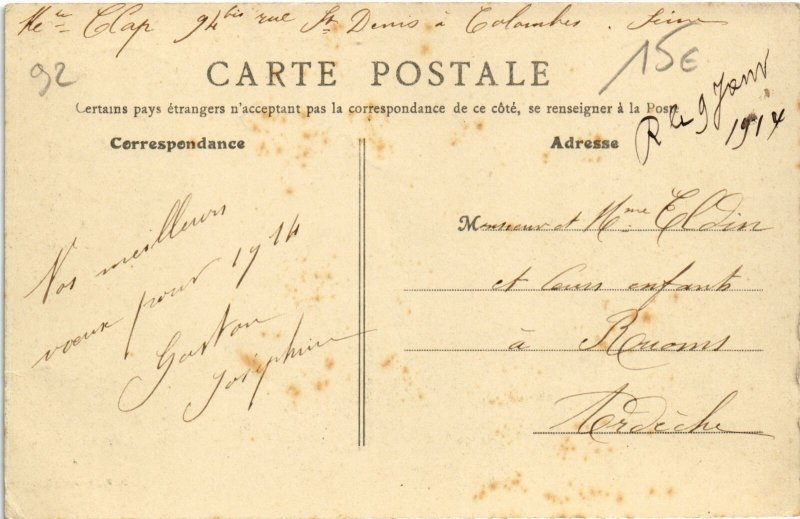 Clap 94bis rue St Denis à Colombes. Seine
92
15€
CARTE POSTALE
Certains pays étrangers n'acceptent pas la correspondance de ce côté, se renseigner à la Poste
R le 9 Janv
1914
Correspondance
Adresse
Nos meilleurs
voeux pour 1914
Gaston
Joséphine
Monsieur et Mme
et leurs enfants
à Ruoms
Ardèche